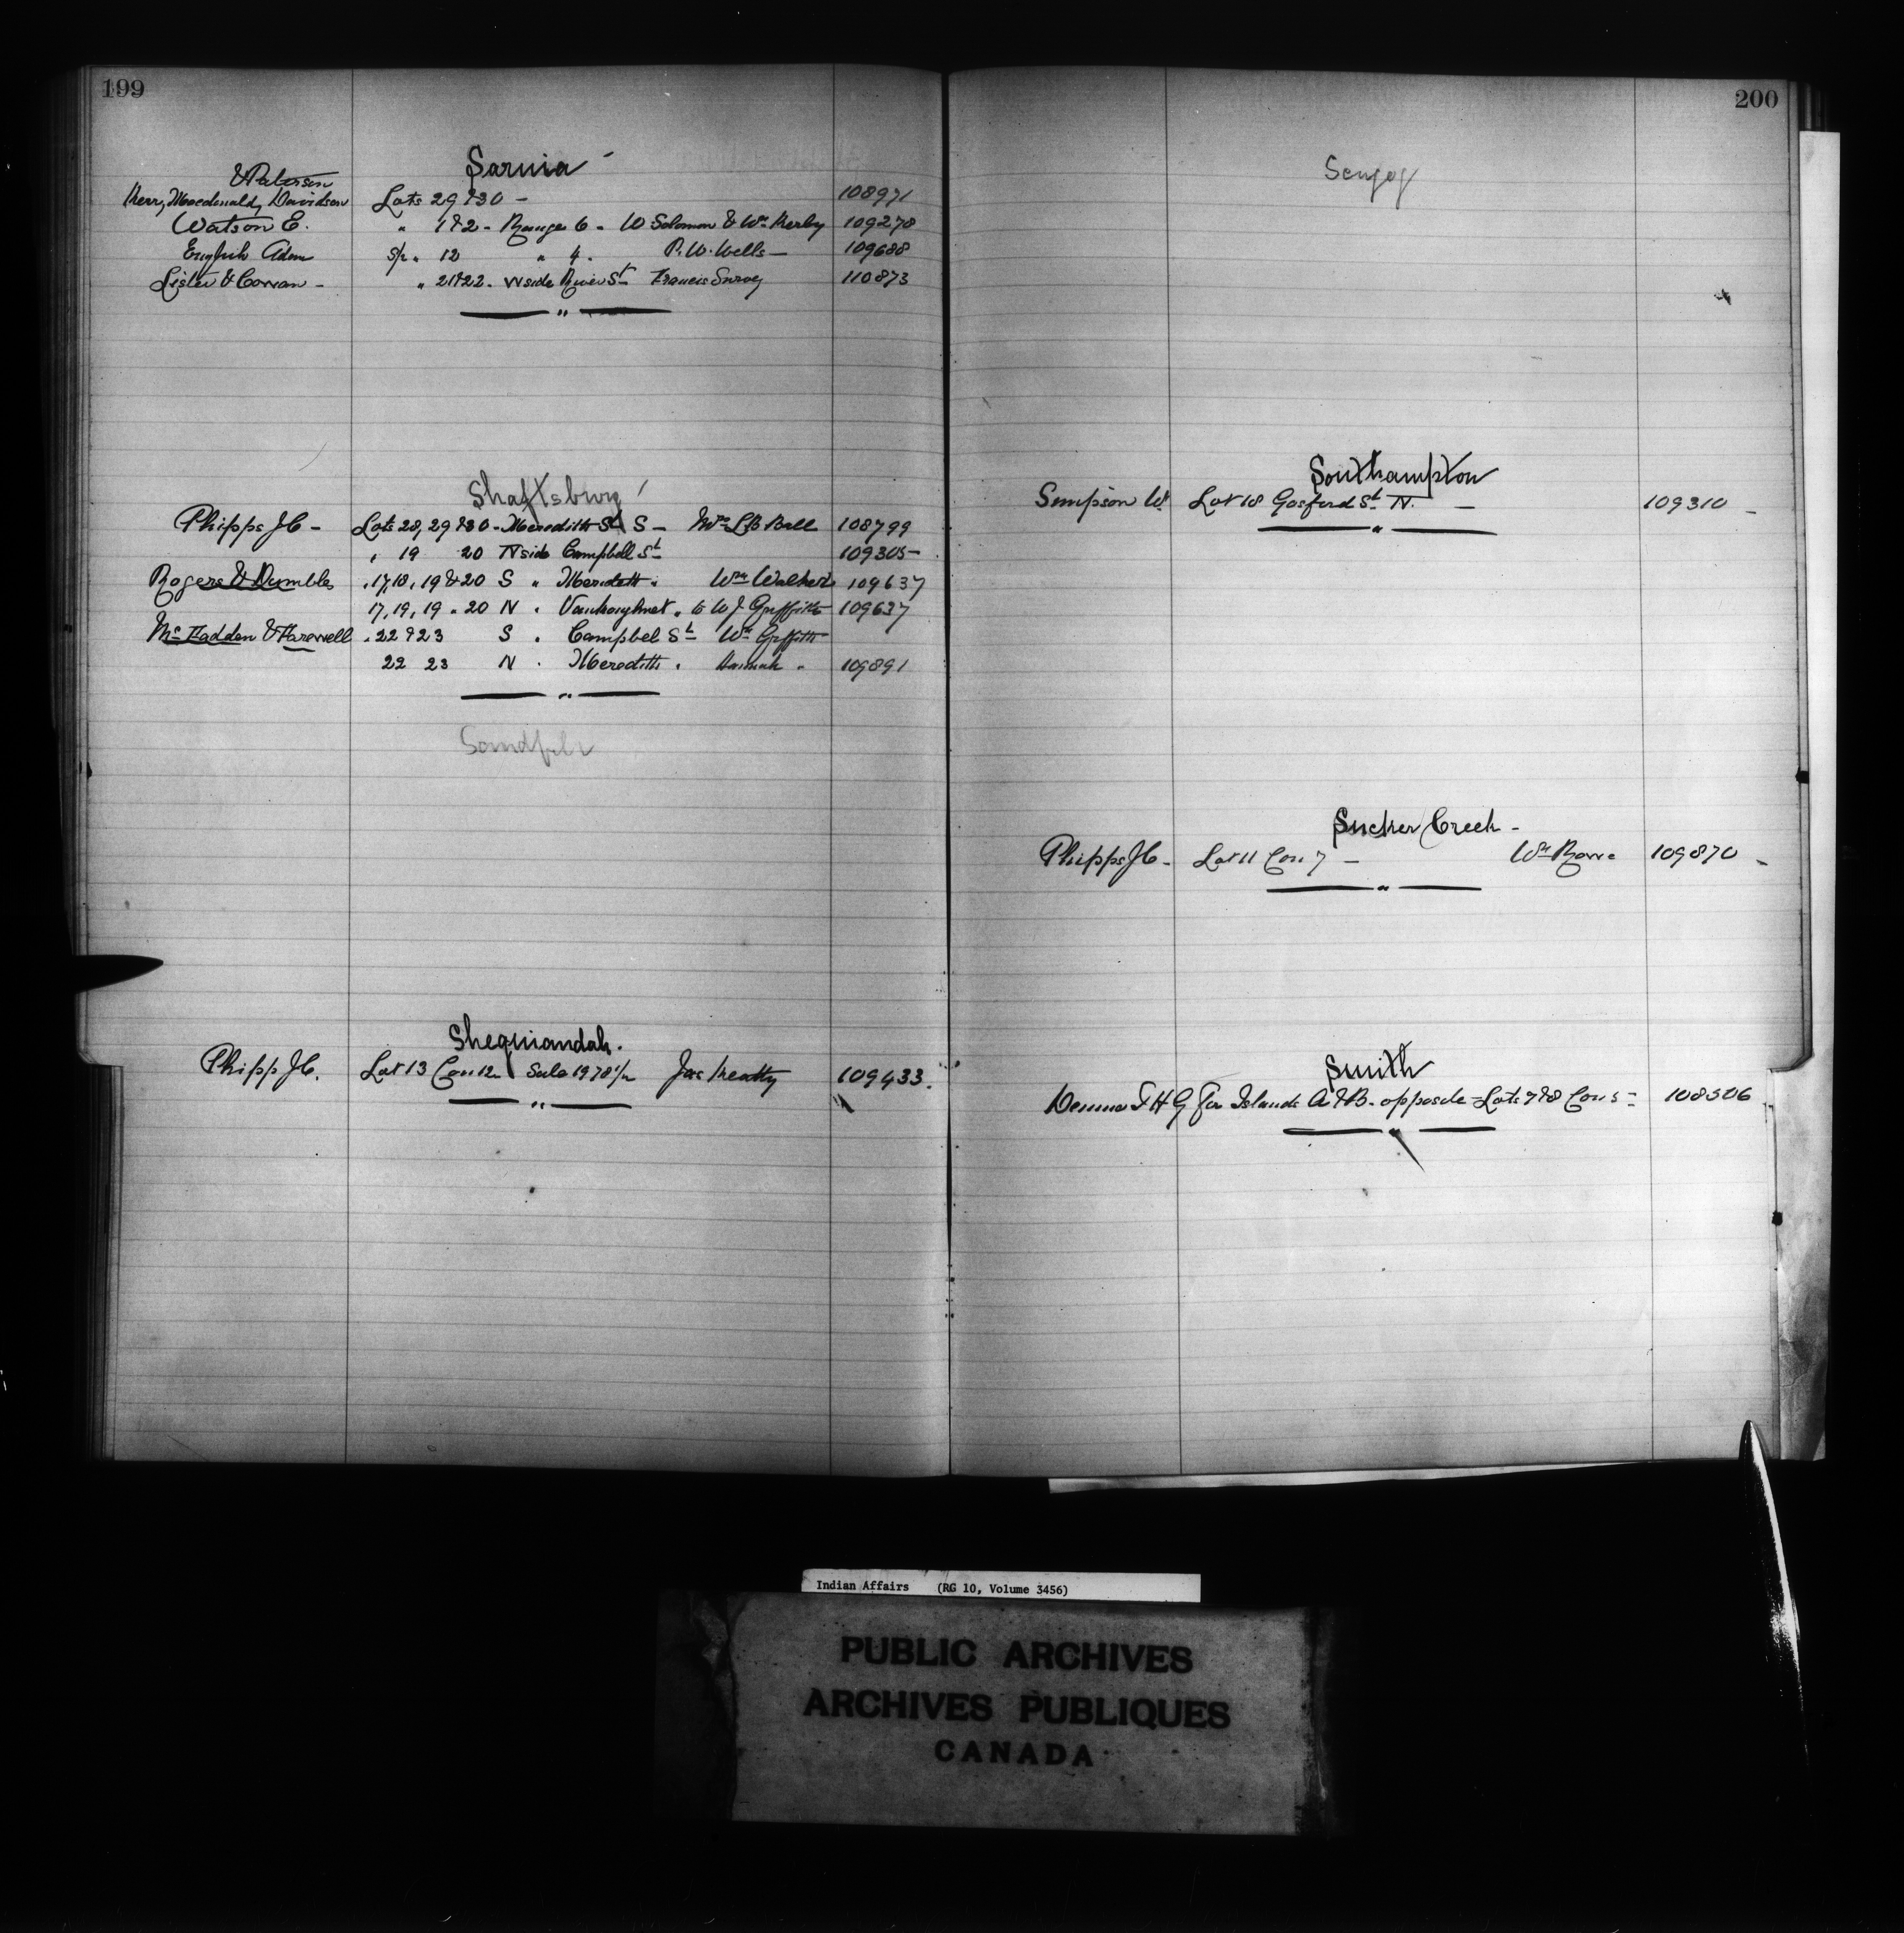 199
Sarnia
& Paterson
Kerr, Macdonald, Davidson Lots 29 & 30 - 108971
Watson E. " 1 & 2 - Range 6 - W Solomon & Wm Kerby 109278
English Adam S/p " 12 " 4 - P. W. Wells - 109688
Lister & Cowan - " 21 & 22 - W side River St Francis Survey 110873
Shaftsbury
Phipps J C - Lots 28, 29 & 30 - Meredith St S - Mrs L B Ball 108799
" 19 20 N side Campbell St 109305 -
Rogers & Dumble " 17, 18, 19 & 20 S " Meredith " Wm Walker 109637
17, 19, 19 " 20 N " Vankoughnet " to W J Griffith 109637
McFadden & Farewell " 22 & 23 S " Campbel St Wm Griffith
22 23 N " Meredith " Hannah " 109891
Shequiandah.
Phipp J C. Lot 13 Con 12 Sale 1978 Jas Keatty 109433.
200
Scugog
Southampton
Simpson W. Lot 18 Gosford St N. - 109310 -
Sucker Creek -
Phipps J C - Lot 11 Con 7 - Wm Rowe 109870 -
Smith
F H G for Islands A & B - opposite Lots 7 & 8 Con 5 - 108506
Indian Affairs (RG 10, Volume 3456)
PUBLIC ARCHIVES
ARCHIVES PUBLIQUES
CANADA